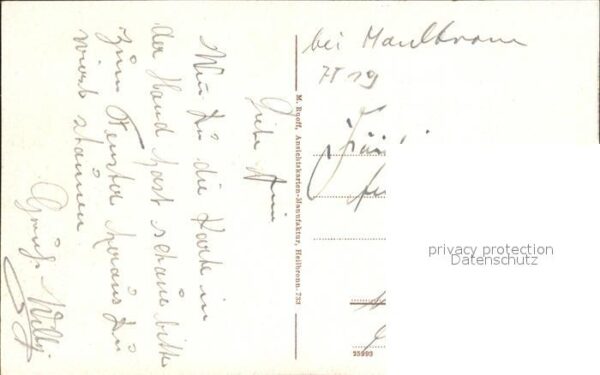 bei Maulbronn
Liebe
Wen du die Karte in
der Hand hast schaue bitte
zum Fenster heraus du
wirst staunen.
Gruß Willy
M. Ruoff, Ansichtskarten-Manufaktur, Heilbronn. 733
privacy protection
Datenschutz
25993